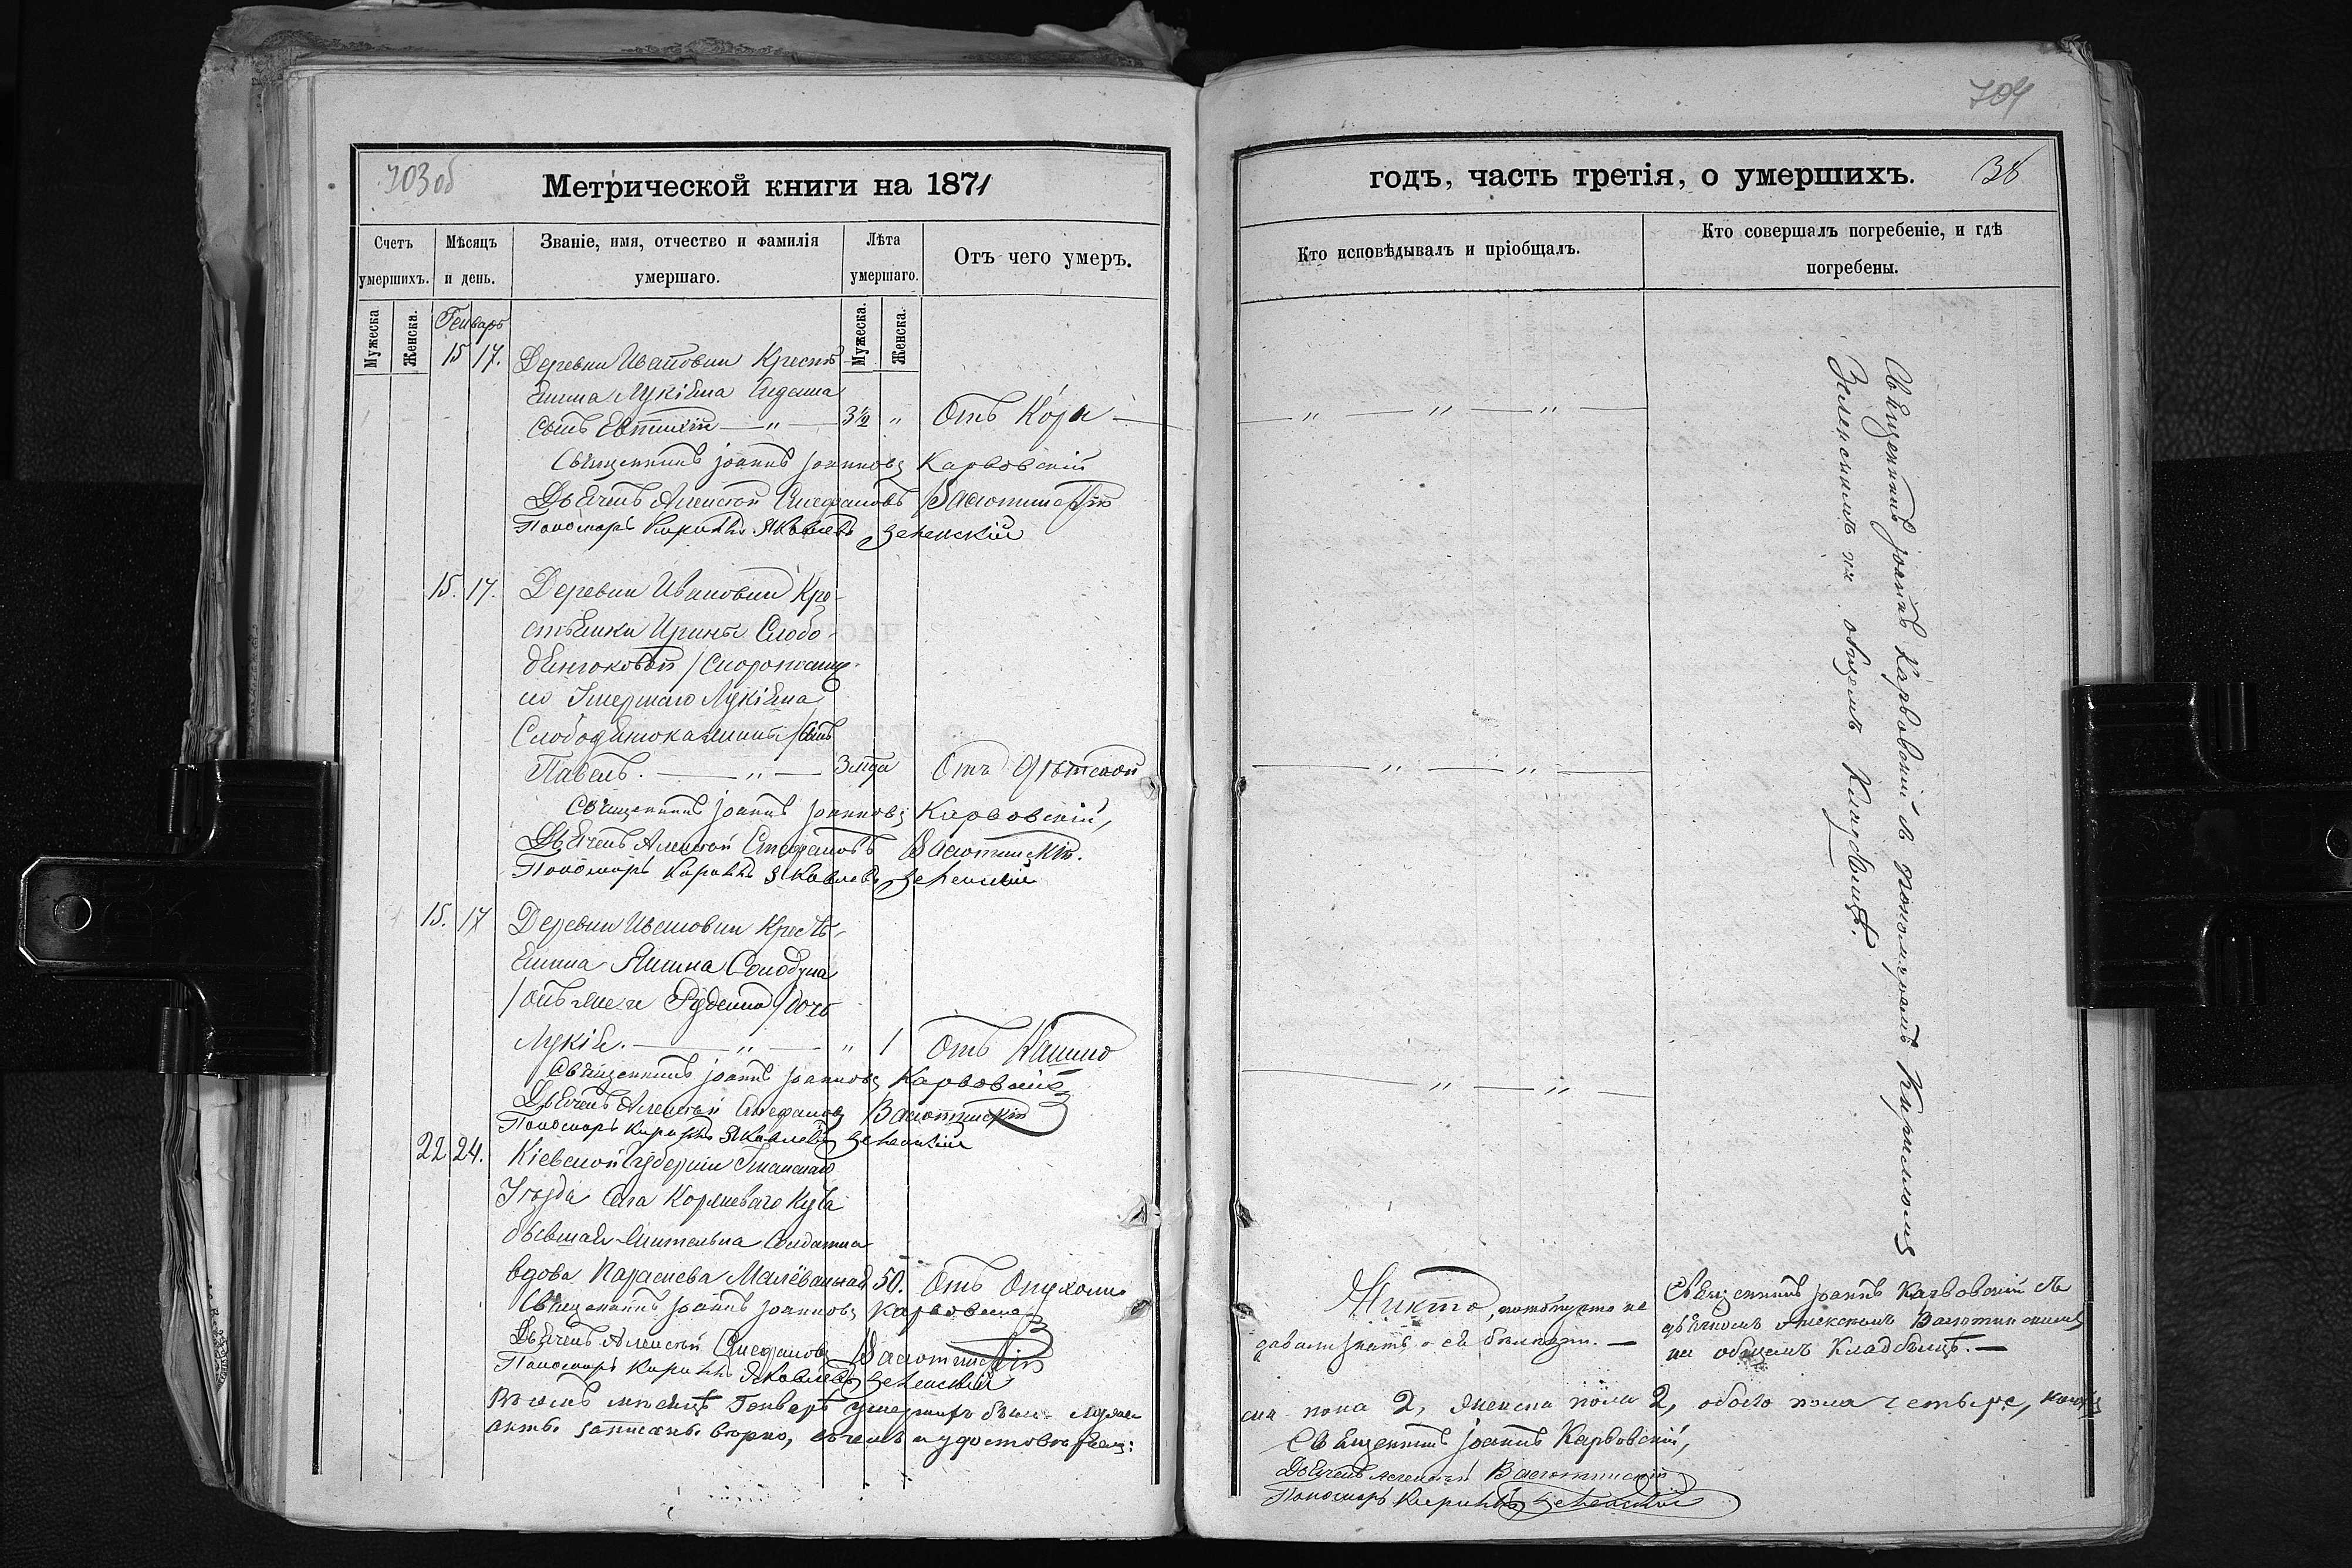 703об
Метрической книги на 1871
Счетъ умершихъ.
Мѣсяцъ и день.
Званіе, имя, отчество и фамилія умершаго.
Лѣта умершаго.
Отъ чего умеръ.
Мужеска
Женска.
Генварь
Мужеска.
Женска.
15 17. Деревни Ивановки Крестѣ-
янина Лукіяна
сынъ Евтихій — „ — 3½ „ Отъ Кора —
Священникъ Іоаннъ Іоанновъ Карвовскій
Дьячекъ Алексѣй Стефановъ Васютинскій
Пономарь Кириллъ Яковлевъ Зеленскій
15. 17. Деревни Ивановки Кре-
стьянки Ирины Слобо-
дянюковой / Скоропостиж-
но Умершаго Лукіяна
Слободянюка жины / Сынъ
Павелъ. — „ — 3 мца Отъ Дѣтской
Священникъ Іоаннъ Іоанновъ Карвовскій,
Дьячекъ Алексѣй Стефановъ Васютинскій.
Пономарь Кириллъ Яковлевъ Зеленскій
15. 17 Деревни Ивановки Крестѣ-
янина Якима Солодуна
/ онъ же и Руденко / дочь
Лукія. — „ — „ 1 Отъ Кашлю
Священникъ Іоаннъ Іоанновъ Карвовскій
Дьячекъ Алексѣй Стефановъ Васютинскій
Пономарь Кириллъ Яковлевъ Зеленскій
22 24. Кіевской Губерніи Уманскаго
Уѣзда Села Коржеваго Кута
бывшая жителька Солдатка
вдова Параскева Малёванная 50. Отъ Опухоли
Священникъ Іоаннъ Іоанновъ Карвовскій
Дьячекъ Алексѣй Стефановъ Васютинскій
Пономарь Кириллъ Яковлевъ Зеленскій
Въ семъ мѣсяцѣ Генварѣ умершихъ было мужес-
актъ записанъ вѣрно, въ чемъ и удостовѣряемъ:
704
годъ, часть третія, о умершихъ.
36
Кто исповѣдывалъ и пріобщалъ.
Кто совершалъ погребеніе, и гдѣ погребены.
— „ — „ — „ —
— „ — „ —
— „ — „ —
Священникъ Іоаннъ Карвовскій съ пономаремъ Кирилломъ
Зеленскимъ на общемъ Кладбищѣ.
Никто, потому что не
давали знать о ея болѣзни. —
Священникъ Іоаннъ Карвовскій съ
дьячкомъ Алексѣемъ Васютинскимъ
на общемъ Кладбищѣ. —
ка пола 2, женска пола 2, обоего пола четыре,
Священникъ Іоаннъ Карвовскій,
Дьячекъ Алексѣй Васютинскій
Пономарь Кириллъ Зеленскій